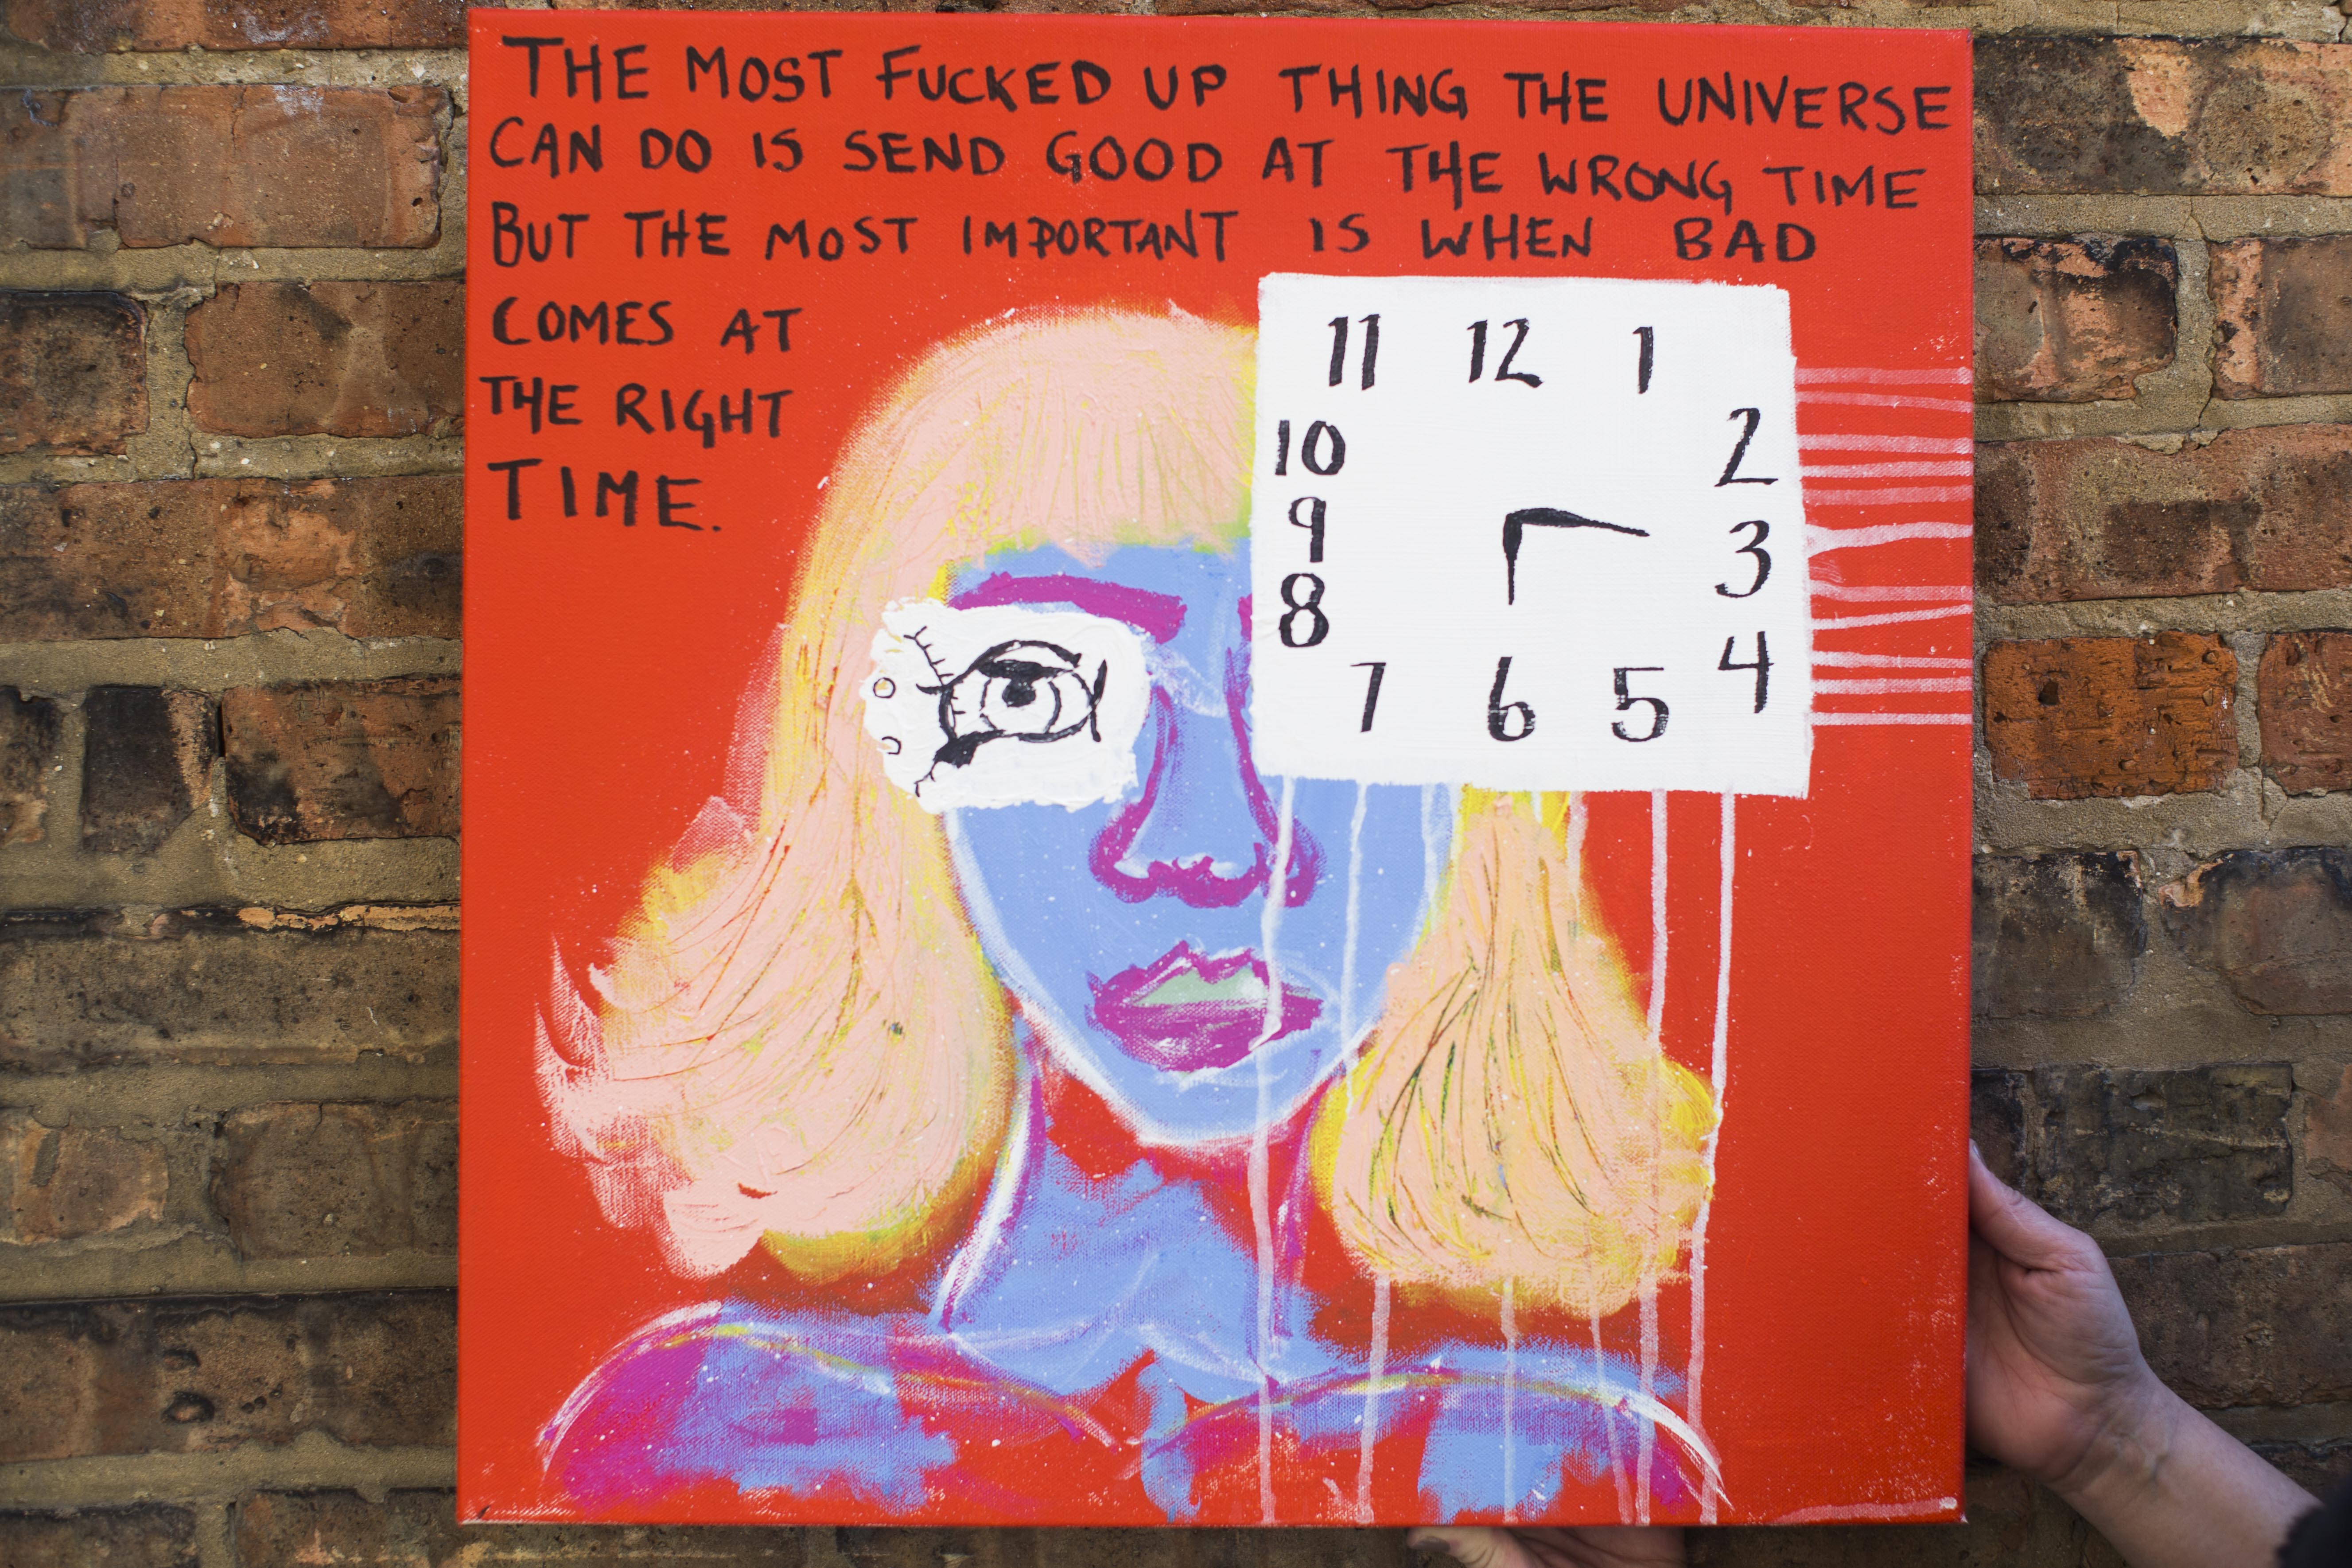 THE MOST FUCKED UP THING THE UNIVERSE
CAN DO IS SEND GOOD AT THE WRONG TIME
BUT THE MOST IMPORTANT IS WHEN BAD
COMES AT
THE RIGHT
TIME.
11 12 1
10 2
9 3
8 4
7 6 5